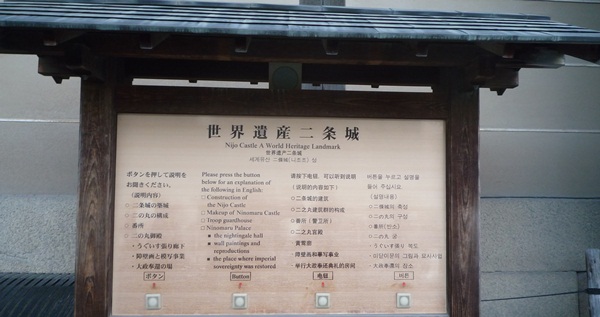 世界遺産二条城
Nijo Castle A World Heritage Landmark
世界遗产二条城
세계유산 二条城(니조조) 성
ボタンを押して説明を
お聞きください。
(説明内容)
○ 二条城の築城
○ 二の丸の構成
○ 番所
○ 二の丸御殿
・うぐいす張り廊下
・障壁画と模写事業
・大政奉還の場
ボタン
Please press the button
below for an explanation of
the following in English:
○ Construction of
the Nijo Castle
○ Makeup of Ninomaru Castle
○ Troop guardhouse
○ Ninomaru Palace
■ the nightingale hall
■ wall paintings and
reproductions
■ the place where imperial
sovereignty was restored
Button
请按下电钮，可以听到说明
(说明的内容如下)
○二条城的建筑
○二之丸建筑群的构成
○番所（警卫所）
○二之丸官殿
・黄莺廊
・障壁画和摹写事业
・举行大政奉还典礼的房间
电钮
버튼을 누르고 설명을
들어 주십시오
(설명내용)
○二の丸의 구성
버튼